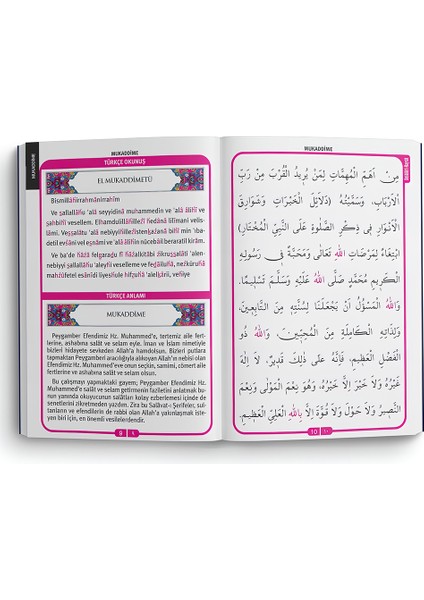 MUKADDİME
MUKADDİME
TÜRKÇE OKUNUŞ
EL MUKADDİMETÜ
Bismillâhirrahmânirrahîm
Ve sallallâhu 'alâ seyyidinâ muhammedin ve 'alâ âlihî ve
sahbihî vesellem. Elhamdulillâhillezî hedânâ lilîmâni vel'is-
lâmi. Vessalâtu 'alâ nebiyyihillezistenkazenâ bihî min 'iba-
detil evsâni vel esnâmi ve 'alâ âlihin nücebâil beraratil kirâm.
TÜRKÇE ANLAMI
MUKADDİME
Peygamber Efendimiz Hz. Muhammed'e, tertemiz aile fert-
lerine, ashabına salât ve selam eyle. İman ve İslam nimetiyle
bizleri hidayete sevkeden Allah'a hamdolsun. Bizleri putlara
tapmaktan Peygamberi aracılığıyla alıkoydu. Allah'ım efendimiz
Muhammed'e ve onun seçkin, samimi, cömert aile
fertlerine ve ashabına salât ve selam eyle.
Bu çalışmayı yapmaktaki gayem; Peygamber Efendimiz Hz.
Muhammed'e salât ve selam getirmenin faziletini anlatmak bu-
nun yanında okuyucunun salâtları kolay ezberlemesi içinde de
senetlerini zikretmeden yazdım. Zira bu Salâvat-ı Şerifeler, sul-
tanların ve efendilerin de rabbi olan Allah'a yakınlaşmak isteyen
biri için, en önemli vesilelerdendir.
9 ٩
MUKADDİME
مِنْ اَهَمِّ الْمُهِمَّاتِ لِمَنْ يُرِيدُ الْقُرْبَ مِنْ رَبِّ
الْاَرْبَابِ، وَسَمَّيْتُهُ (دَلَآئِلَ الْخَيْرَاتِ وَشَوَارِقَ
الْاَنْوَارِ فِى ذِكْرِ الصَّلٰوةِ عَلَى النَّبِيِّ الْمُخْتَارِ)
ابْتِغَآءً لِمَرْضَاتِ اللهِ تَعَالٰى وَمَحَبَّةً فِى رَسُولِهِ
الْكَرِيمِ مُحَمَّدٍ صَلَّى اللهُ عَلَيْهِ وَسَلَّمَ تَسْلِيمًا،
وَاللهُ الْمَسْؤُلُ اَنْ يَجْعَلَنَا لِسُنَّتِهِ مِنَ التَّابِعِينَ،
وَلِذَاتِهِ الْكَامِلَةِ مِنَ الْمُحِبِّينَ. وَاللهُ ذُو
الْفَضْلِ الْعَظِيمِ، فَاِنَّهُ عَلٰى ذٰلِكَ قَدِيرٌ. لَا اِلٰهَ
غَيْرُهُ وَلَا خَيْرَ اِلَّا خَيْرُهُ، وَهُوَ نِعْمَ الْمَوْلٰى وَنِعْمَ
النَّصِيرُ وَلَا حَوْلَ وَلَا قُوَّةَ اِلَّا بِاللهِ الْعَلِيِّ الْعَظِيمِ.
10 ١٠